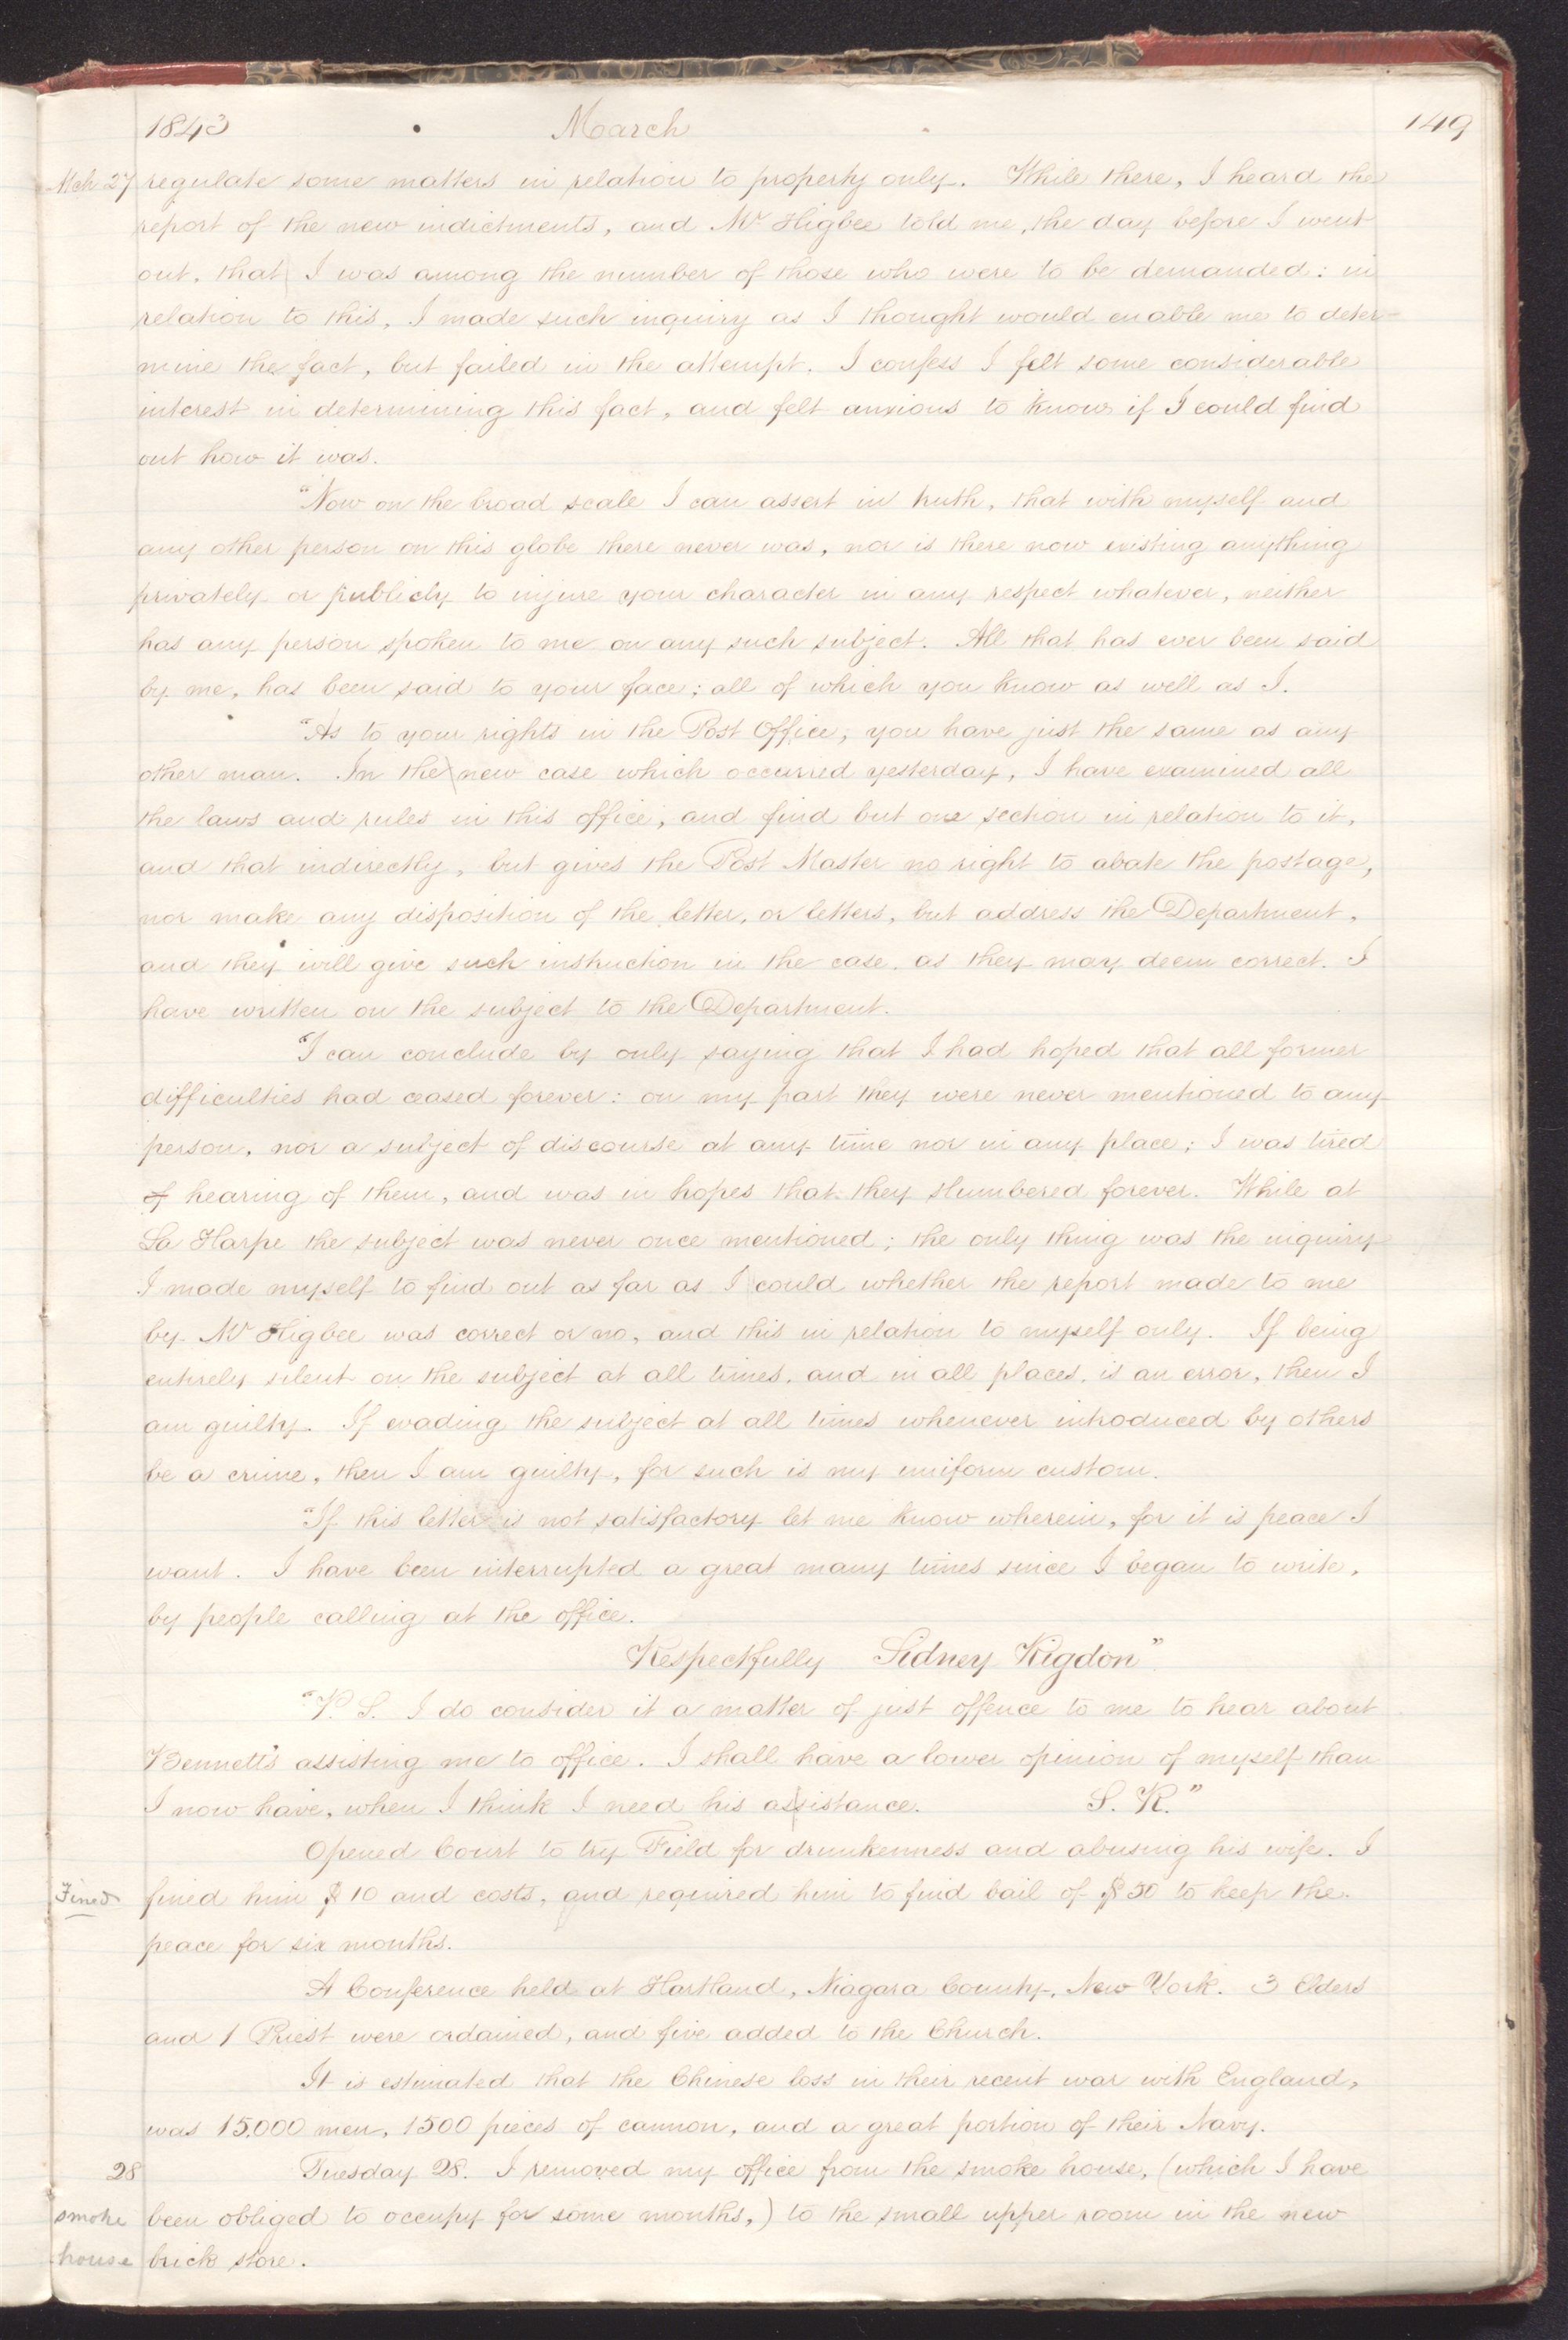 1843 March 149
Mch 27 regulate some matters in relation to property only. While there, I heard the
report of the new indictments, and Mr Higbee told me, the day before I went
out, that I was among the number of those who were to be demanded: in
relation to this, I made such inquiry as I thought would enable me to deter=
mine the fact, but failed in the attempt. I confess I felt some considerable
interest in determining this fact, and felt anxious to know if I could find
out how it was.
"Now on the broad scale I can assert in truth, that with myself and
any other person on this globe there never was, nor is there now existing anything
privately or publicly to injure your character in any respect whatever, neither
has any person spoken to me on any such subject. All that has ever been said
by me, has been said to your face; all of which you know as well as I.
"As to your rights in the Post Office, you have just the same as any
other man. In the new case which occurred yesterday, I have examined all
the laws and rules in this office, and find but one section in relation to it,
and that indirectly, but gives the Post Master no right to abate the postage,
nor make any disposition of the letter, or letters, but address the Department,
and they will give such instruction in the case, as they may deem correct. I
have written on the subject to the Department.
"I can conclude by only saying that I had hoped that all former
difficulties had ceased forever: on my part they were never mentioned to any
person, nor a subject of discourse at any time nor in any place; I was tired
of hearing of them, and was in hopes that they slumbered forever. While at
La Harpe the subject was never once mentioned; the only thing was the inquiry
I made myself to find out as far as I could whether the report made to me
by Mr Higbee was correct or no, and this in relation to myself only. If being
entirely silent on the subject at all times, and in all places, is an error, then I
am guilty. If evading the subject at all times whenever introduced by others
be a crime, then I am guilty, for such is my uniform custom.
"If this letter is not satisfactory let me know wherein, for it is peace I
want. I have been interrupted a great many times since I began to write,
by people calling at the office.
Respectfully Sidney Rigdon"
"P. S. I do consider it a matter of just offence to me to hear about
Bennett's assisting me to office. I shall have a lower opinion of myself than
I now have, when I think I need his assistance. S. R."
Opened Court to try Field for drunkenness and abusing his wife. I
Fined fined him $10 and costs, and required him to find bail of $50 to keep the
peace for six months.
A Conference held at Hartland, Niagara County, New York. 3 Elders
and 1 Priest were ordained, and five added to the Church.
It is estimated that the Chinese loss in their recent war with England,
was 15,000 men, 1500 pieces of cannon, and a great portion of their Navy.
28 Tuesday 28. I removed my office from the smoke house, (which I have
smoke been obliged to occupy for some months,) to the small upper room in the new
house brick store.